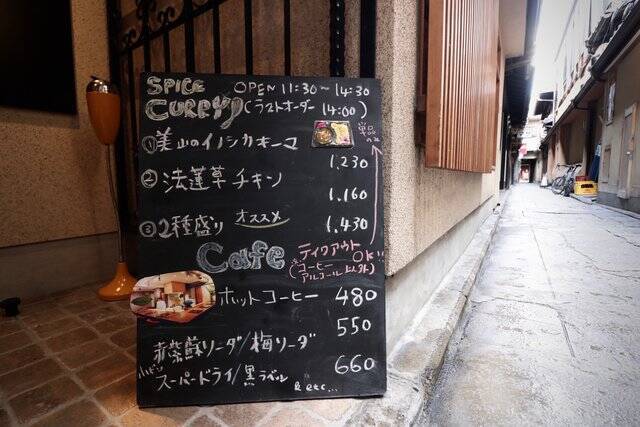 SPICE CURRY OPEN 11:30~14:30
(ラストオーダー 14:00)
①美山のイノシカキーマ 単品のみ
1,230
②法蓮草チキン
1,160
③2種盛り オススメ
1,430
Cafe テイクアウトOK!!
(コーヒー アルコール以外)
ホットコーヒー 480
550
赤紫蘇ソーダ/梅ソーダ
660
スーパードライ/黒ラベル
& etc...